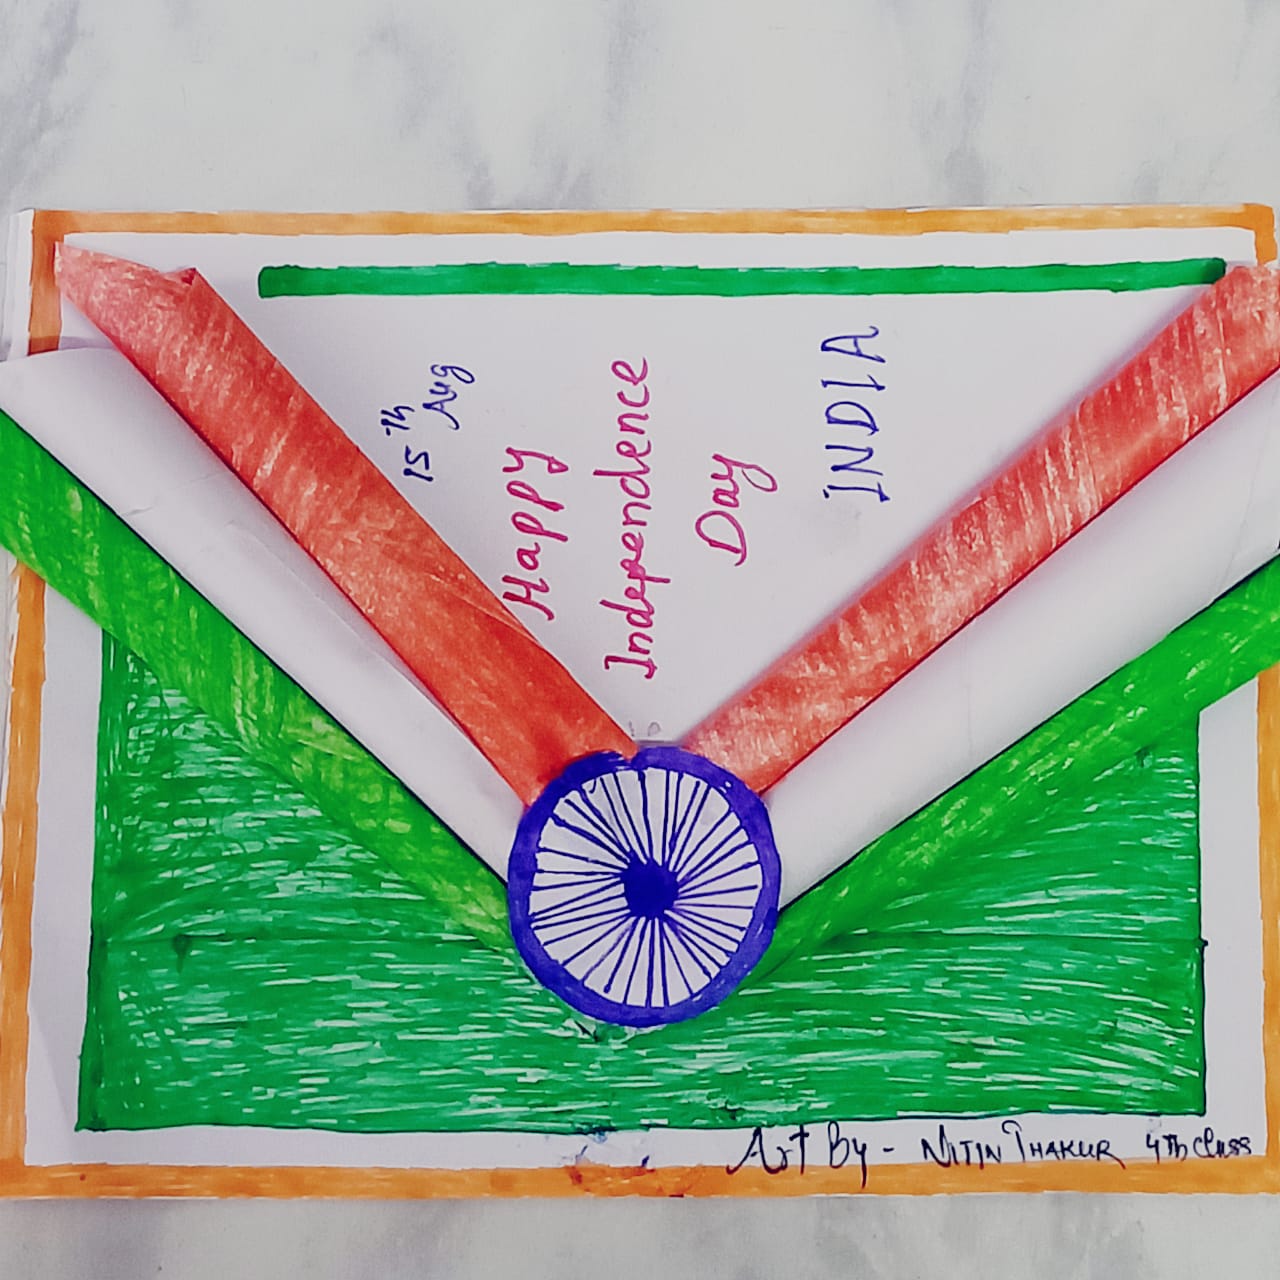 15th Aug
Happy
Independence
Day
INDIA
Art By - Nitin Thakur 4th Class